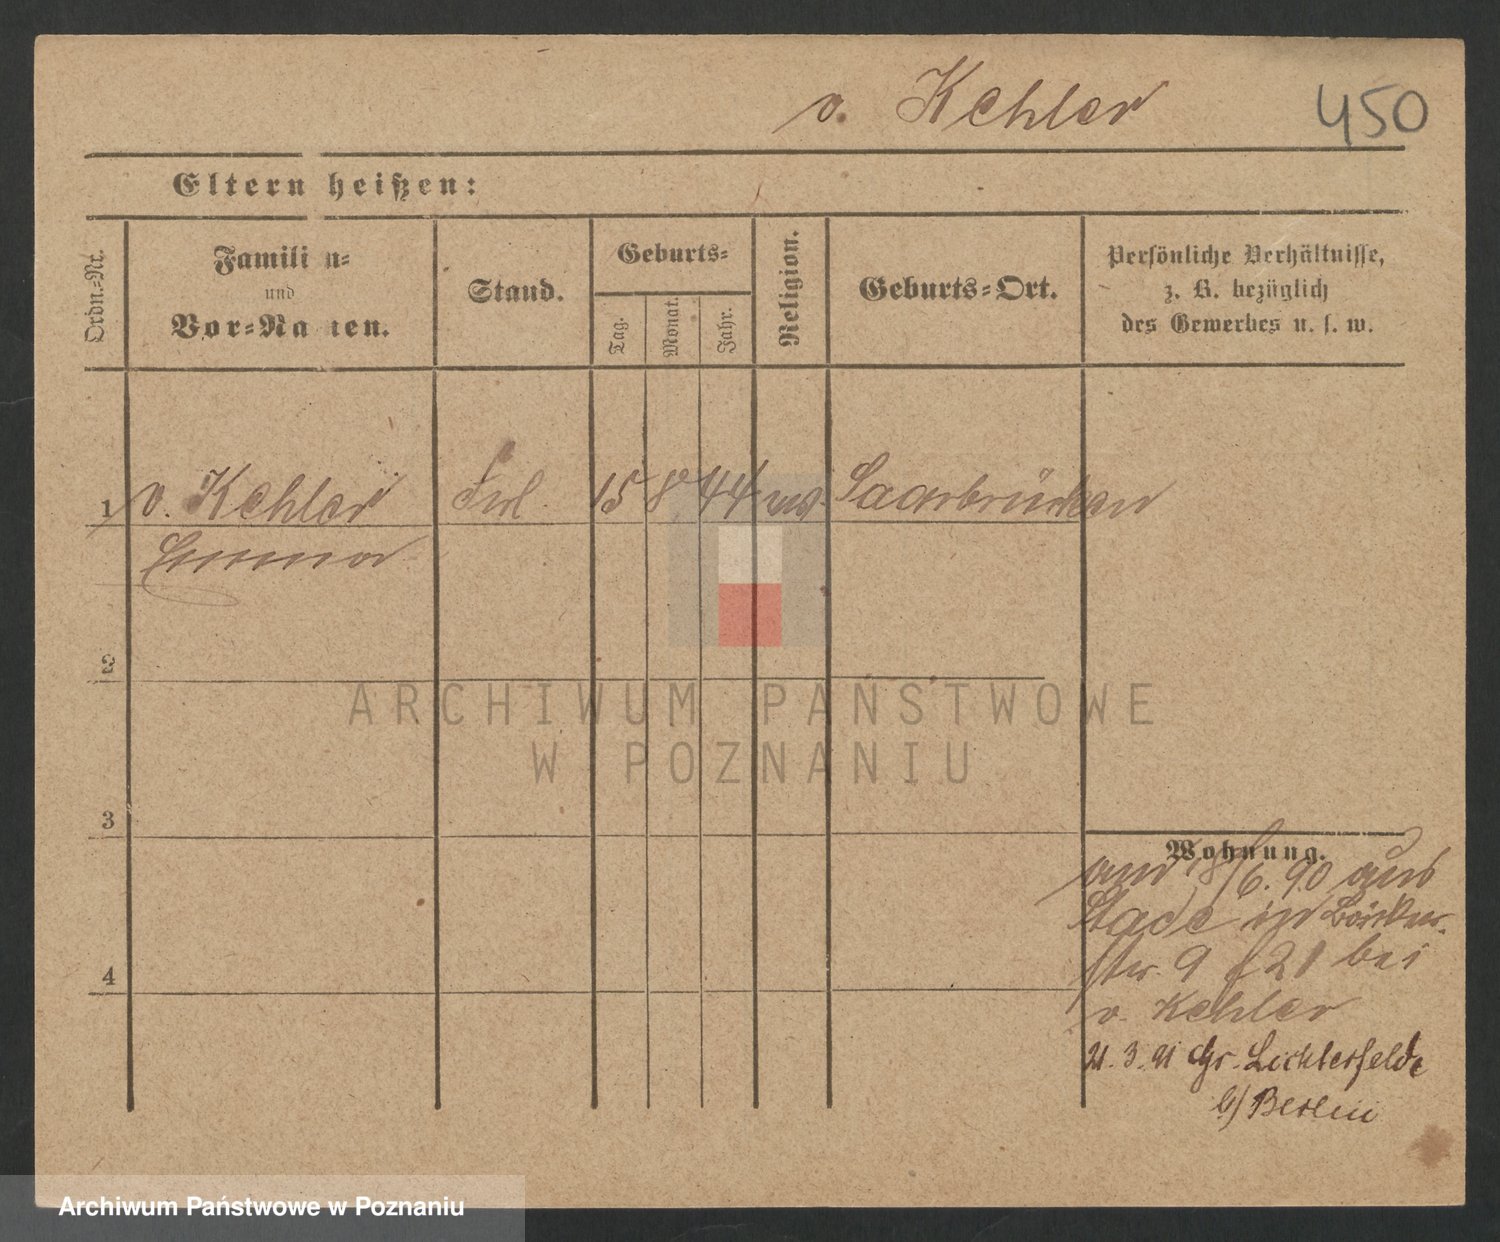 v. Kehler
450
Eltern heißen:
Ordn.-Nr.
Familien-
und
Vor-Namen.
Stand.
Geburts-
Tag.
Monat.
Jahr.
Religion.
Geburts-Ort.
Persönliche Verhältnisse,
z. B. bezüglich
des Gewerbes u. s. w.
1 v. Kehler Frl. 15 8 44 ev. Saarbrücken
Emma
2
3
4
Wohnung.
18/6. 90 aus
Stade in
str. 9 bei
v. Kehler
21. 3. 91 Gr. Lichterfelde
b/ Berlin
ARCHIWUM PAŃSTWOWE
W POZNANIU
Archiwum Państwowe w Poznaniu